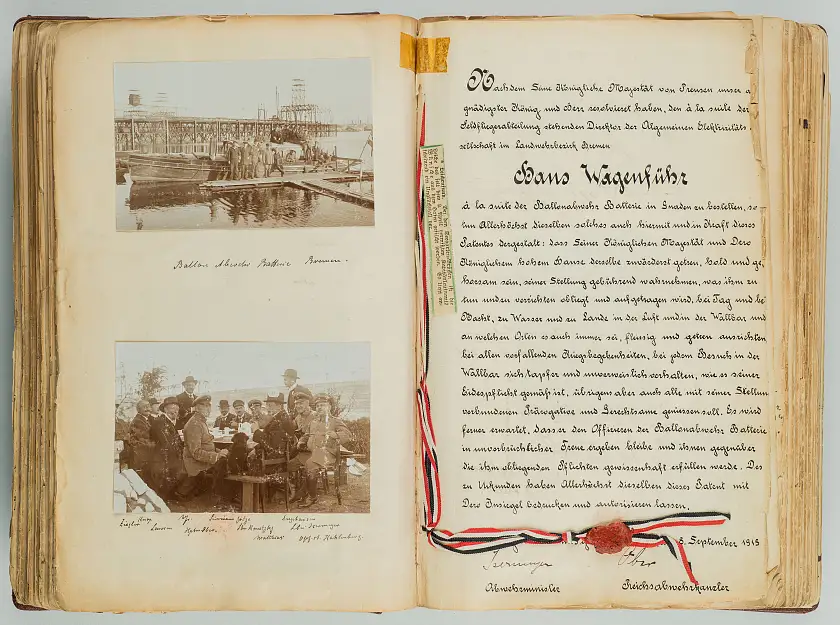 Ballon Abwehr Batterie Bremen.
Nachdem Seine Königliche Majestät von Preusen unser a
gnädigster König und Herr resolvieret haben, den à la suite der
Feldfliegerabteilung stehenden Direktor der Allgemeinen Elektrizitäts
sellschaft im Landwehrbezirk Bremen
Hans Wagenführ
à la suite der Ballonabwehr Batterie in Gnaden zu bestellen, so
tun Allerhöchst dieselben solches auch hiermit und in Kraft dieses
Patentes dergestalt: dass Seiner Königlichen Majestät und Dero
Königlichem hohem Hause derselbe zuvörderst getreu, hold und ge,
horsam sein, seiner Stellung gebührend wahrnehmen, was ihm zu
tun und zu verrichten obliegt und aufgetragen wird, bei Tag und bei
Nacht, zu Wasser und zu Lande in der Luft und in der Wallbar und
an welchen Orten es auch immer sei, fleusig und getreu ausrichten
bei allen vorfallenden Kriegsbegebenheiten, bei jedem Besuch in der
Wallbar sich tapfer und unverweislich verhalten, wie es seiner
Eidespflicht gemäß ist, übrigens aber auch alle mit seiner Stellun
verbundenen Prärogative und Gerechtsame geniessen soll. Es wird
ferner erwartet, dass er den Officieren der Ballonabwehr Batterie
in unverbrüchlicher Treue ergeben bleibe und ihnen gegenüber
die ihm obliegenden Pflichten gewissenhaft erfüllen werde. Des
zu Urkunden haben Allerhöchst dieselben dieses Patent mit
Dero Insiegel bedrucken und autorisieren lassen.
8. September 1915
Abwehrminister
Reichsabwehrkanzler